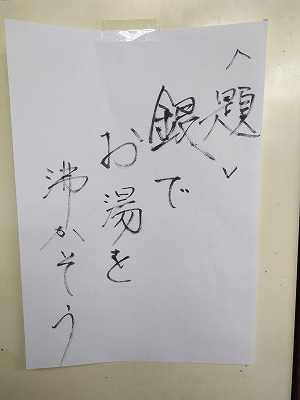 <題>
銀で
お湯を
沸かそう